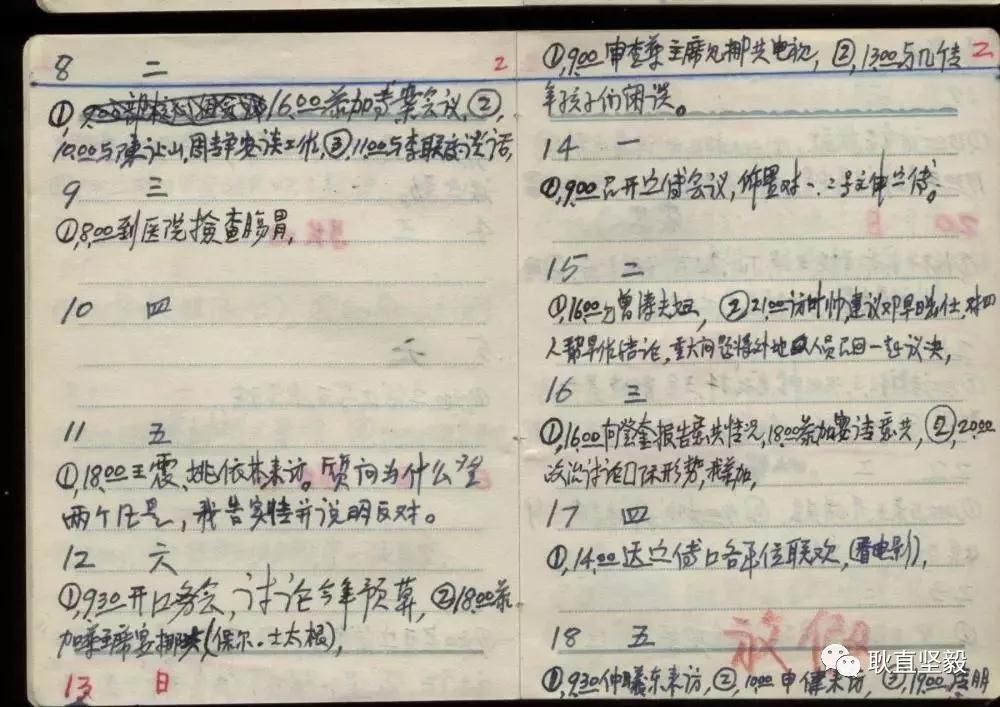 8 二 2
①, 16.00参加专案会议, ②,
10.00与陈让山,周静安谈工作,③,11.00与李联庆谈话,
9 三
①,8.00到医院檢查腸胃,
10 四
11 五
①,18.00王震、姚依林来访。质问为什么
两个凡是, 我告实情并说明反对。
12 六
①,9.30开口务会,讨论今年预算,②18.00参
加華主席宴挪共(保尔.士太根),
13 日
①,9.00审查華主席见挪共电视, ②, 13.00与几个
年孩子们闲谈。 2
14 一
①,9.00召开宣传会议, 佈置对一、二号文件宣传。
15 二
①,16.00 曾涛夫妇, ②21.00访叶帅,建议邓早日出仕,对四
人帮早作结论, 重大问题将外地人员召回一起议决,
16 三
①,16.00向登奎报告意共情况,18.00参加宴请意共, ②,20.00
政治讨论口保形势,我参加,
17 四
①,14.00送宣传口各单位联欢,(看电影),
18 五 放假
①,9.30仲曦东来访,②,10.00申健来访, ③,19.00
耿直坚毅